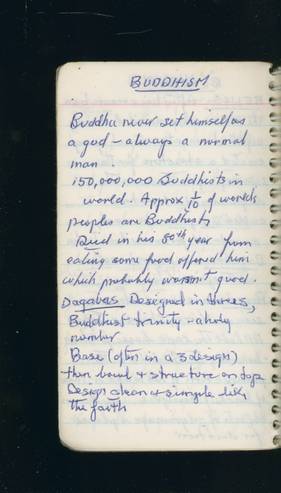 BUDDHISM
Buddha never set himself as
a god - always a normal
man.
150,000,000 Buddhists in
world. Approx 1/10 of worlds
peoples are Buddhists
Died in his 80th year from
eating some food offered him
which probably wasn't good.
Dagabas Designed in threes,
Buddhist trinity - a holy
number
Base (often in a 3 design)
then bowl + structure on top
Design clean + simple like
the faith